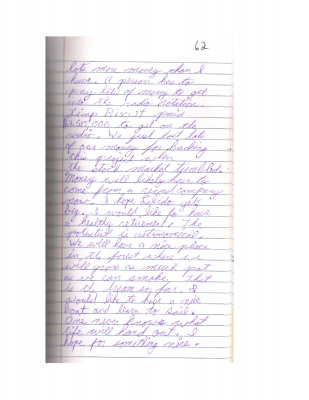 62
lots more money than I
have. A person has to
pay lots of money to get
into the radio rotation.
Limp Biscuit paid
$150,000 to get on the
radio. We just lost lots
of our money for backing
this project when
the stock market tumbled.
Money will likely have to
come from a record company
now. I hope Libido gets
big. I would like to have
a healthy retirement. The
potential is astronomical.
We will have a nice place
in the forest where we
will grow as much pot
as we can smoke. That
is the dream so far. I
would like to have a nice
boat and learn to sail.
One never knows what
life will hand out. I
hope for something nice.